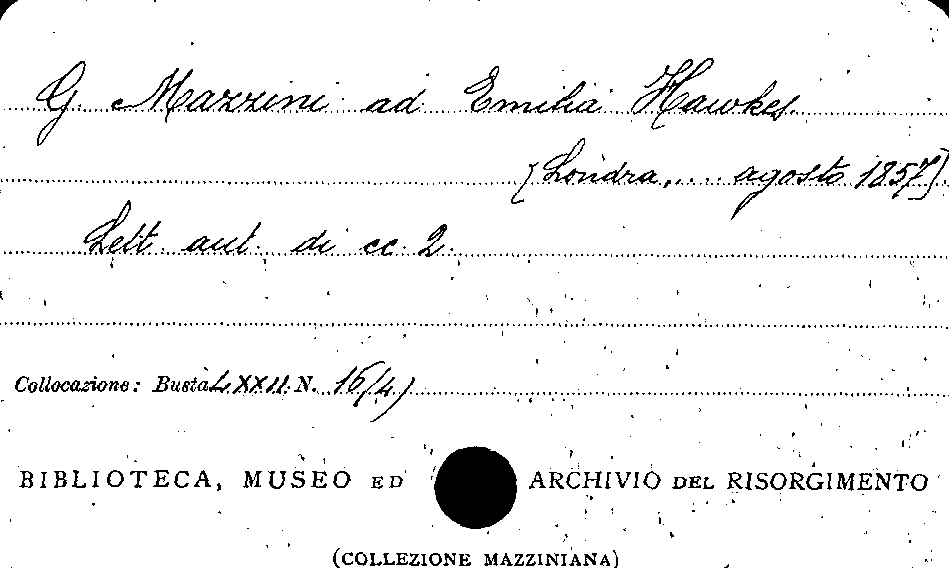 G. Mazzini ad Emilia Hawkes
[Londra, .... agosto 1857]
Lett. aut. di cc. 2.
Collocazione: Busta LXXII N. 16(4)
BIBLIOTECA, MUSEO ED ARCHIVIO DEL RISORGIMENTO
(COLLEZIONE MAZZINIANA)